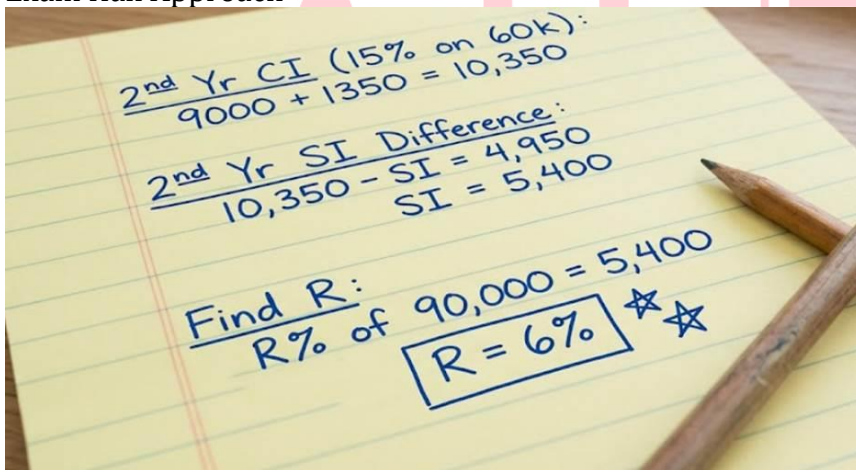 2nd Yr CI (15% on 60k):
9000 + 1350 = 10,350
2nd Yr SI Difference:
10,350 - SI = 4,950
SI = 5,400
Find R:
R% of 90,000 = 5,400
R = 6%